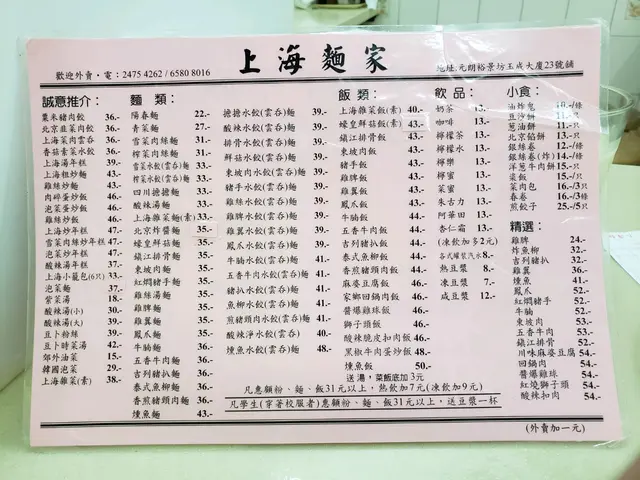 上海麵家
歡迎外賣・電：2475 4262 / 6580 8016
地址:元朗裕景坊王成大廈23號舖
誠意推介：
粟米豬肉餃 36.-
北京韭菜肉餃 36.-
上海菜肉雲吞 36.-
香菇素菜水餃 36.-
上海湯年糕 39.-
上海粗炒麵 43.-
雞絲炒麵 43.-
肉碎蛋炒飯 46.-
泡菜蛋炒飯 46.-
雞絲炒飯 46.-
上海炒年糕 47.-
雪菜肉絲炒年糕 47.-
泡菜炒年糕 47.-
酸辣湯年糕 37.-
上海小籠包(6只) 33.-
泡菜麵 37.-
紫菜湯 18.-
酸辣湯(小) 30.-
酸辣湯(大) 39.-
豆卜粉絲 39.-
豆卜時菜湯 42.-
郊外油菜 15.-
韓國泡菜 29.-
上海雜菜(素) 38.-
麵類：
陽春麵 22.-
青菜麵 27.-
雪菜肉絲麵 31.-
榨菜肉絲麵 31.-
雪菜水餃(雲吞)麵 33.-
榨菜水餃(雲吞)麵 33.-
四川擔擔麵 33.-
酸辣湯麵 33.-
上海雜菜麵(素) 33.-
北京炸醬麵 35.-
蠔皇鮮菇麵 35.-
鎮江排骨麵 35.-
東坡肉麵 35.-
紅燜豬手麵 35.-
雞絲湯麵 35.-
雞脾麵 35.-
雞翼麵 35.-
鳳爪麵 35.-
牛腩麵 36.-
五香牛肉麵 36.-
吉列豬扒麵 36.-
泰式魚柳麵 36.-
香煎豬頸肉麵 36.-
燻魚麵 43.-
擔擔水餃(雲吞)麵 39.-
酸辣水餃(雲吞)麵 39.-
排骨水餃(雲吞)麵 39.-
鮮菇水餃(雲吞)麵 39.-
東坡肉水餃(雲吞)麵 39.-
豬手水餃(雲吞)麵 39.-
雞絲水餃(雲吞)麵 39.-
雞脾水餃(雲吞)麵 39.-
雞翼水餃(雲吞)麵 39.-
鳳爪水餃(雲吞)麵 39.-
牛腩水餃(雲吞)麵 41.-
五香牛肉水餃(雲吞)麵 41.-
豬扒水餃(雲吞)麵 41.-
魚柳水餃(雲吞)麵 41.-
煎豬頸肉水餃(雲吞)麵 41.-
酸辣淨水餃(雲吞) 40.-
燻魚水餃(雲吞)麵 48.-
飯類：
上海雜菜飯(素) 40.-
蠔皇鮮菇飯(素) 43.-
鎮江排骨飯 43.-
東坡肉飯 43.-
豬手飯 43.-
雞脾飯 43.-
雞翼飯 43.-
鳳爪飯 43.-
牛腩飯 44.-
五香牛肉飯 44.-
吉列豬扒飯 44.-
泰式魚柳飯 44.-
香煎豬頸肉飯 44.-
麻婆豆腐飯 46.-
家鄉回鍋肉飯 46.-
醬爆雞球飯 46.-
獅子頭飯 46.-
酸辣脆皮扣肉飯 46.-
黑椒牛肉蛋炒飯 48.-
燻魚飯 50.-
送湯，菜飯底加3元
飲品：
奶茶 13.-
咖啡 13.-
檸檬茶 13.-
檸檬水 13.-
檸樂 13.-
檸蜜 13.-
菜蜜 13.-
朱古力 13.-
阿華田 13.-
杏仁霜 13.-
(凍飲加多2元)
各式罐裝汽水 8.-
熱豆漿 7.-
凍豆漿 8.-
咸豆漿 12.-
小食：
油炸鬼 10.-/條
豆沙餅 11.-/只
蔥油餅 11.-只
北京餡餅 13.-只
銀絲卷 12.-/條
銀絲卷(炸) 14.-/條
洋蔥牛肉餅 15.-只
粢飯 15.-/只
菜肉包 16.-/3只
春卷 16.-/3條
煎餃子 25.-/5只
精選：
雞脾 24.-
炸魚柳 32.-
吉列豬扒 32.-
雞翼 36.-
燻魚 41.-
鳳爪 52.-
紅燜豬手 52.-
牛腩 52.-
東坡肉 53.-
五香牛肉 53.-
鎮江排骨 52.-
川味麻婆豆腐 54.-
回鍋肉 54.-
醬爆雞球 54.-
紅燒獅子頭 54.-
酸辣扣肉 54.-
凡惠顧粉、麵、飯31元以上，熱飲加7元(凍飲加9元)
凡學生(穿著校服者)惠顧粉、麵、飯31元以上，送豆漿一杯
(外賣加一元)